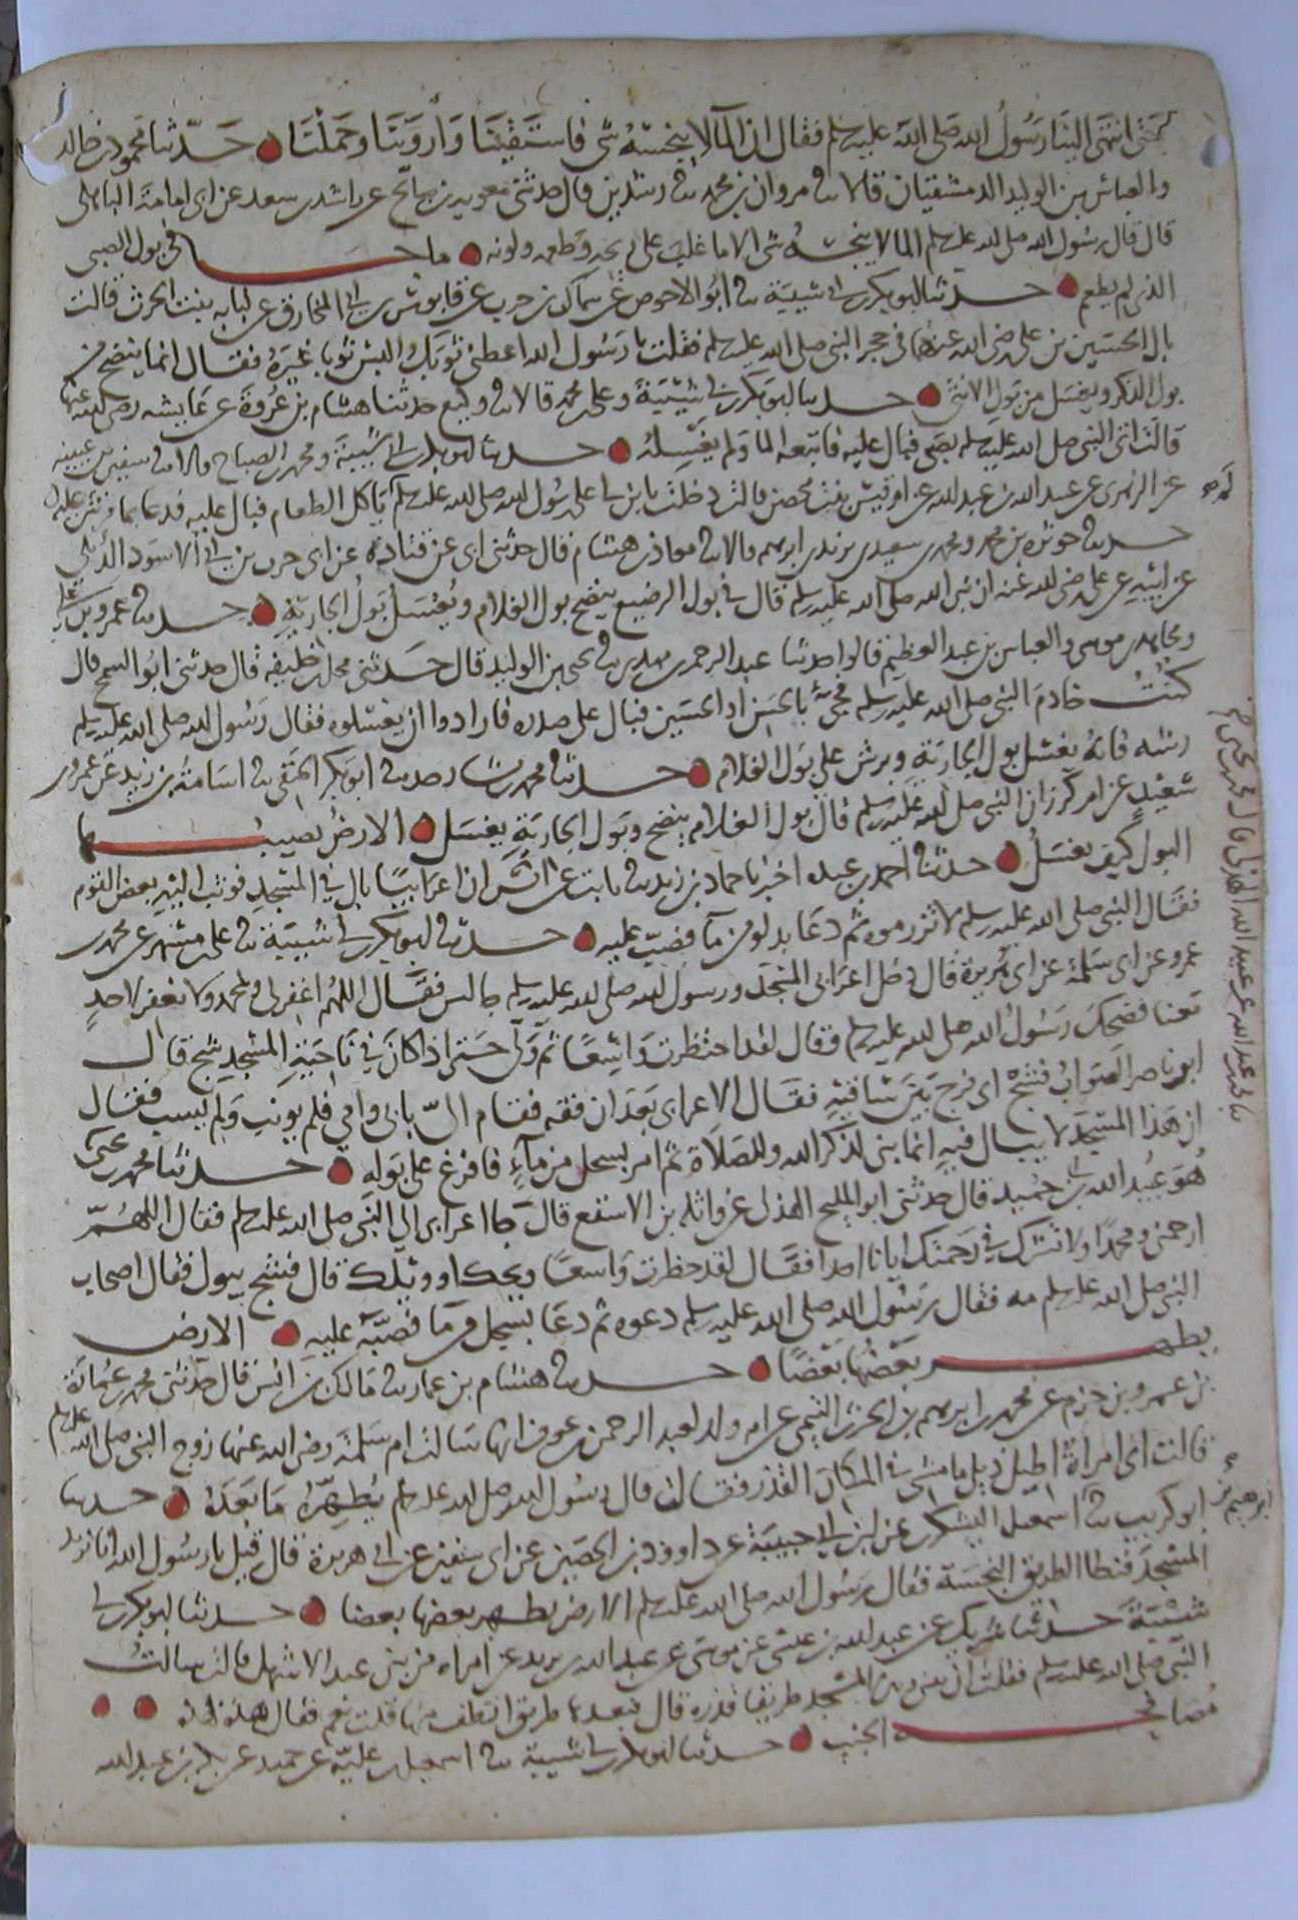 حتى انتهى الينا رسول الله صلى الله عليه وسلم فقال ان الما لا ينجسه شي فاستقينا وأروينا وحملنا حدثنا محمود بن خالد
والعباس بن الوليد الدمشقيان قالا ثنا مروان بن محمد ثنا رشدين قال حدثني معوية بن صالح عن راشد بن سعد عن ابي امامة الباهلي
قال قال رسول الله صلى الله عليه وسلم الما لا ينجسه شي الا ما غلب على ريحه وطعمه ولونه ما جا في بول الصبي
الذي لم يطعم حدثنا ابو بكر بن ابي شيبة ثنا ابو الاحوص عن سماك بن حرب عن قابوس بن ابي المخارق عن لبابه بنت الحرث قالت
بال الحسين بن علي رضي الله عنهما في حجر النبي صلى الله عليه وسلم فقلت يا رسول الله اعطني ثوبك والبس ثوبا غيره فقال انما ينضح من
بول الذكر ويغسل من بول الانثى حدثنا ابو بكر بن ابي شيبة وعلي بن محمد قالا ثنا وكيع حدثنا هشام بن عروة عن ابيه عن عايشه رضي الله عنها
قالت اتى النبي صلى الله عليه وسلم بصبي فبال عليه فاتبعه الما ولم يغسله حدثنا ابو بكر بن ابي شيبة ومحمد بن الصباح قالا ثنا سفين بن عيينه
عن الزهري عن عبيد الله بن عبد الله عن ام قيس بنت محصن قالت دخلت بابن لي على رسول الله صلى الله عليه وسلم لم ياكل الطعام فبال عليه فدعا بما فرش عليه
حدثنا حوثرة بن محمد ومحمد بن سعيد بن يزيد بن ابرهيم قالا ثنا معاذ بن هشام قال حدثني ابي عن قتاده عن ابي حرب بن ابي الاسود الديلي
عن ابيه عن علي رضي الله عنه ان نبي الله صلى الله عليه وسلم قال في بول الرضيع ينضح بول الغلام ويغسل بول الجارية حدثنا عمرو بن علي
ومجاهد بن موسى والعباس بن عبد العظيم قالوا حدثنا عبد الرحمن بن مهدي ثنا يحيى بن الوليد قال حدثني محل بن خليفه قال حدثني ابو السمح قال
كنت خادم النبي صلى الله عليه وسلم فجيء بالحسن او الحسين فبال على صدره فارادوا ان يغسلوه فقال رسول الله صلى الله عليه وسلم
رشه فانه يغسل بول الجارية ويرش على بول الغلام حدثنا محمد بن بشار حدثنا ابو بكر الحنفي ثنا اسامة بن زيد عن عمرو بن
شعيب عن ام كرز ان النبي صلى الله عليه وسلم قال بول الغلام ينضح وبول الجارية يغسل الارض يصيبها
البول كيف يغسل حدثنا احمد بن عبده اخبرنا حماد بن زيد ثنا ثابت عن انس ان اعرابيا بال في المسجد فوثب اليه بعض القوم
فقال النبي صلى الله عليه وسلم لا تزرموه ثم دعا بدلو من ما فصب عليه حدثنا ابو بكر بن ابي شيبة ثنا علي بن مسهر عن محمد بن
عمرو عن ابي سلمة عن ابي هريرة قال دخل اعرابي المسجد ورسول الله صلى الله عليه وسلم جالس فقال اللهم اغفر لي ولمحمد ولا تغفر لاحد
معنا فضحك رسول الله صلى الله عليه وسلم وقال لقد احتظرت واسعا ثم ولى حتى اذا كان في ناحية المسجد فشج قال
ابو ناصر الصواب فشج اي فرج بين ساقيه فقال الاعرابي بعد ان فقه فقام الي بابي وامي فلم يونب ولم يسب فقال
ان هذا المسجد لا يبال فيه انما بني لذكر الله وللصلاة ثم امر بسجل من مآء فافرغ على بوله حدثنا محمد بن يحيى
هو عبيد الله بن ابي حميد قال حدثني ابو المليح الهذلي عن واثله بن الاسقع قال جا اعرابي الى النبي صلى الله عليه وسلم فقال اللهم
ارحمني ومحمدا ولا تشرك في رحمتك ايانا احدا فقال لقد حظرت واسعا ويحك او ويلك قال فشج يبول فقال اصحاب
النبي صلى الله عليه وسلم مه فقال رسول الله صلى الله عليه وسلم دعوه ثم دعا بسجل من ما فصبه عليه الارض
يطهر بعضها بعضا حدثنا هشام بن عمار ثنا مالك بن انس قال حدثني محمد بن عمارة
بن عمرو بن حزم عن محمد بن ابرهيم بن الحرث التيمي عن ام ولد لعبد الرحمن بن عوف انها سالت ام سلمة رضي الله عنها زوج النبي صلى الله عليه وسلم
قالت اني امراة اطيل ذيلي فامشي في المكان القذر فقالت قال رسول الله صلى الله عليه وسلم يطهره ما بعده حدثنا
ابو كريب ثنا اسمعيل اليشكري عن ابن ابي حبيبة عن داوود بن الحصين عن ابي سفين عن ابي هريرة قال قيل يا رسول الله انا نريد
المسجد فنطا الطريق النجسة فقال رسول الله صلى الله عليه وسلم الارض يطهر بعضها بعضا حدثنا ابو بكر بن ابي
شيبة حدثنا شريك عن عبد الله بن عيسى عن موسى بن عبد الله بن يزيد عن امراه من بني عبد الاشهل قالت سالت
النبي صلى الله عليه وسلم فقلت ان بيني وبين المسجد طريقا قذره قال فبعدها طريق انظف منها قلت نعم فقال هذه بهذه
مصافحة الجنب حدثنا ابو بكر بن ابي شيبة ثنا اسمعيل بن علية عن حميد عن بكر بن عبد الله
ثنا محمد بن عبد الله عن عبيد الله الهذلي قال محمد بن يحيى
ابرهيم بن